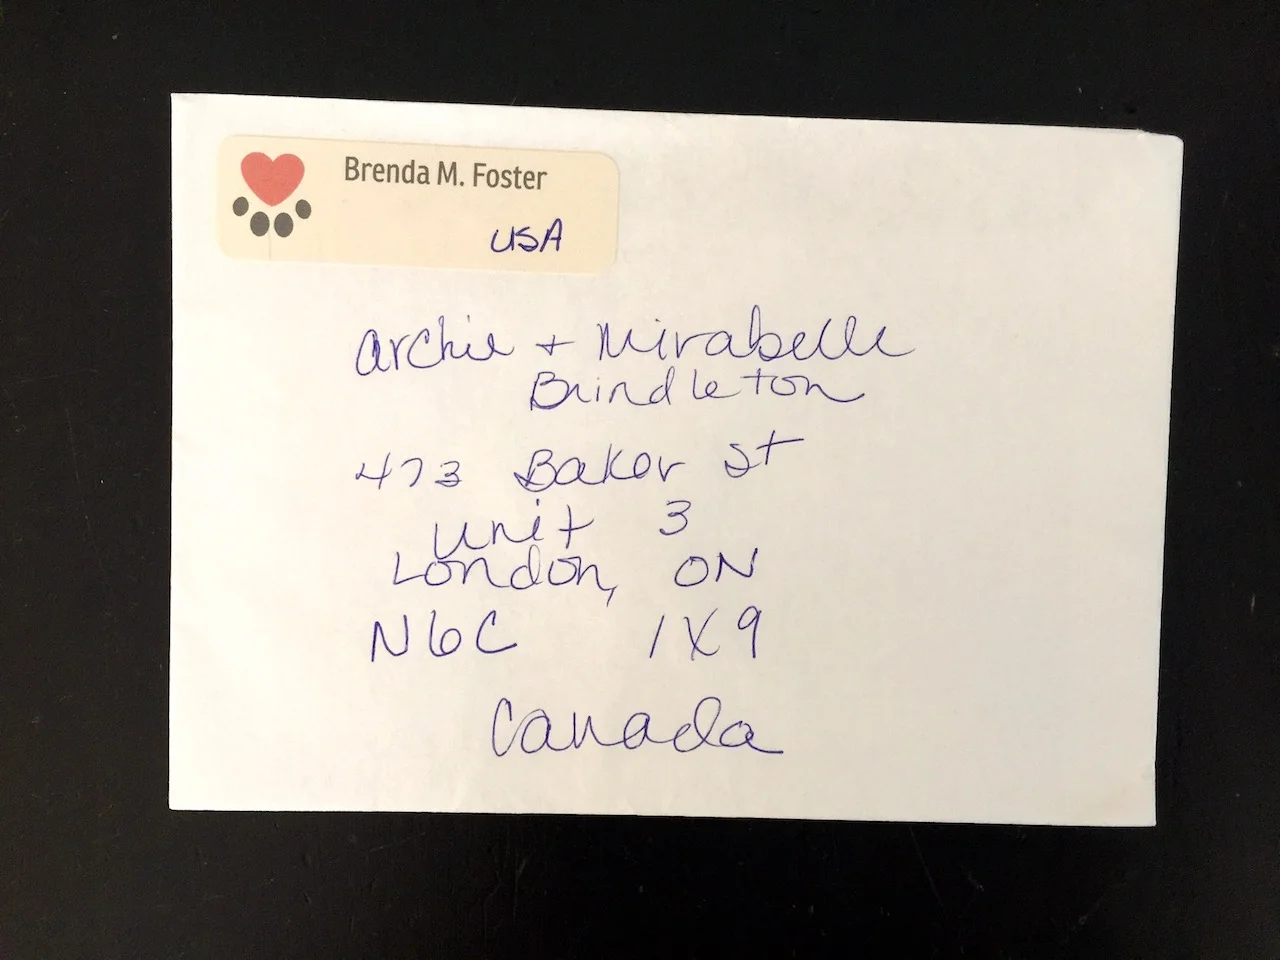 Brenda M. Foster
USA
Archie + Mirabelle
Brindleton
473 Baker St
Unit 3
London, ON
N6C 1X9
Canada